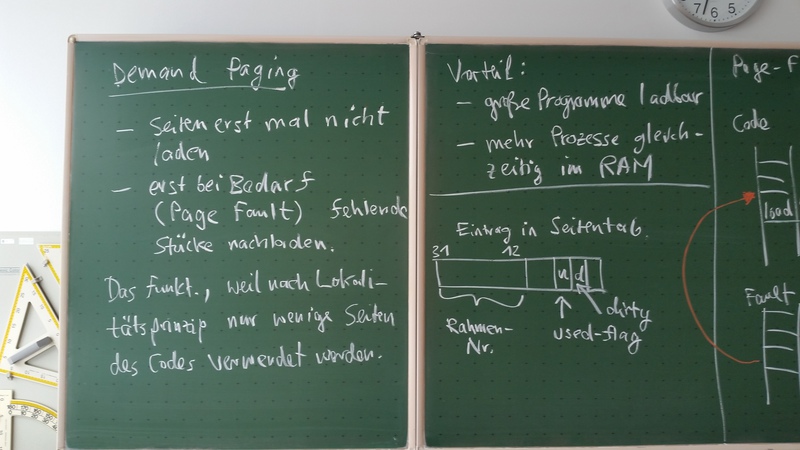 Demand Paging
– Seiten erst mal nicht
laden
– erst bei Bedarf
(Page Fault) fehlende
Stücke nachladen.
Das funkt., weil nach Lokali-
tätsprinzip nur wenige Seiten
des Codes verwendet werden.
Vorteil:
– große Programme ladbar
– mehr Prozesse gleich-
zeitig im RAM
Eintrag in Seitentab.
31 12
u d
Rahmen-
Nr.
dirty
used-flag
Page-F
Code
load
Fault
7 6 5